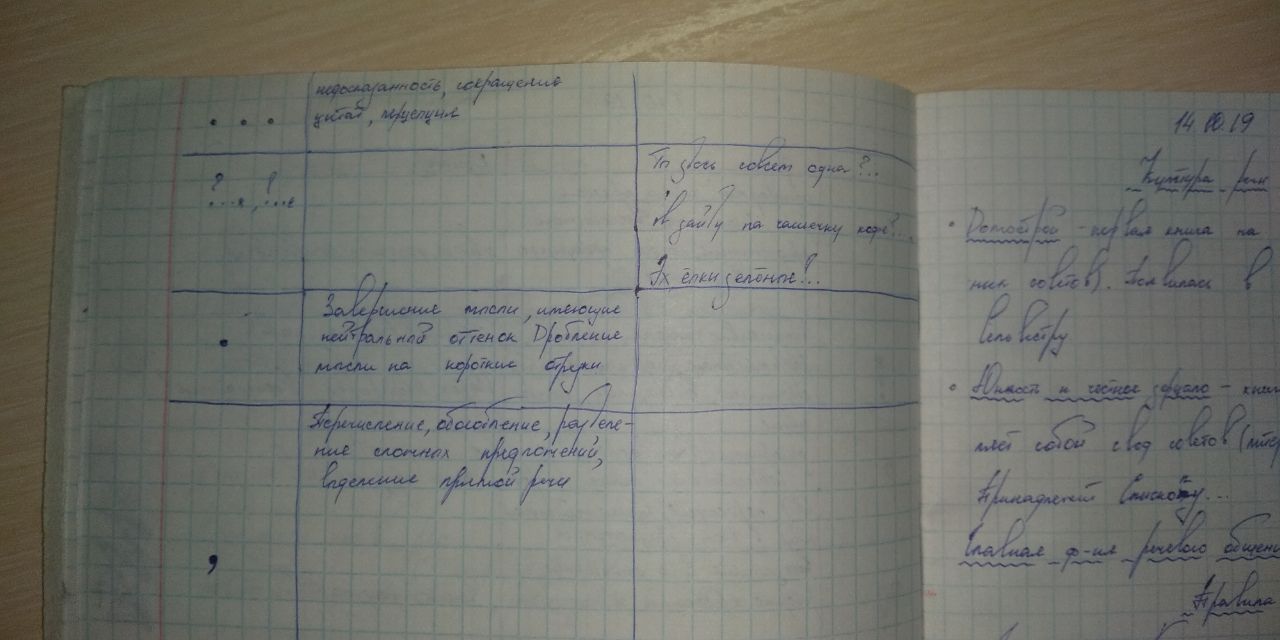 недосказанность, сокращение
. . . цитат, парцелляция
?..., !...
Ты здесь совсем одна?..
зайду на чашечку кофе?...
Эх ёлки зелёные!..
Завершение мысли, имеющие
. нейтральный оттенок Дробление
мысли на короткие отрезки
Перечисление, обособление, разделе-
ние сложных предложений,
выделение прямой речи
,
14.10.19
Культура речи
• Домострой - первая книга на
ник советов). Появилась в
Сильвестру
• Юности честное зерцало - книг
ляет собой свод советов (
Принадлежит
Главная ф-ия речевого общени
Правила